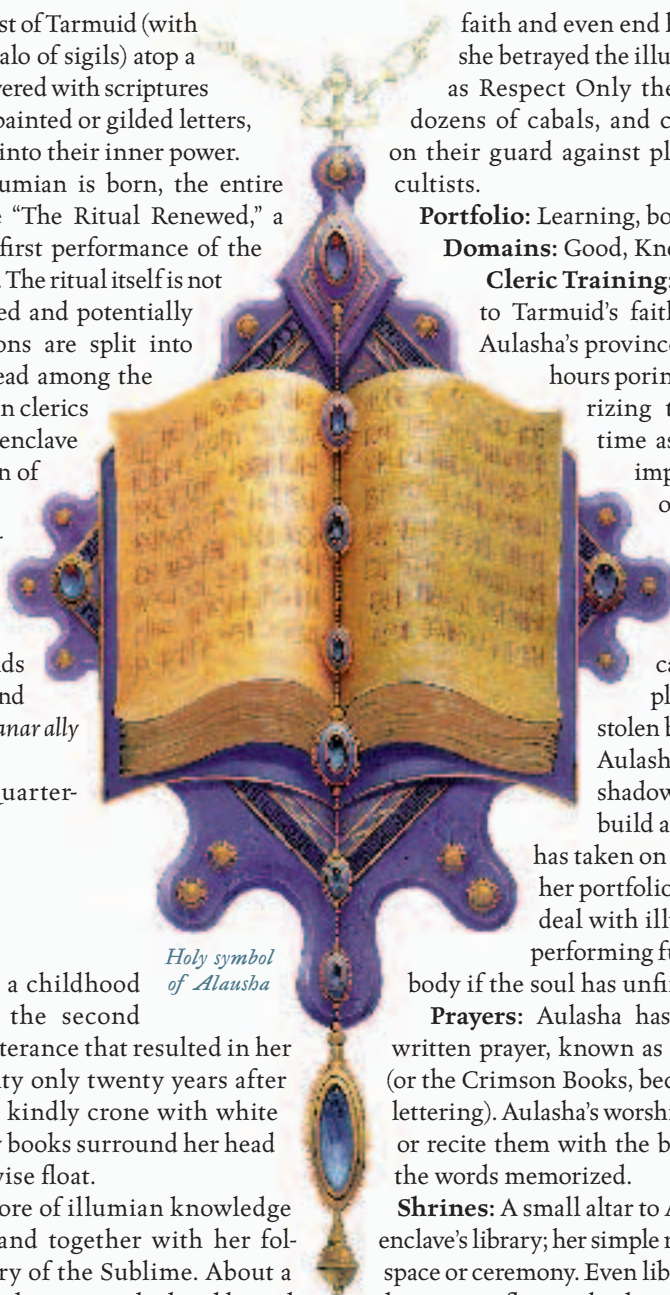 st of Tarmuid (with
alo of sigils) atop a
vered with scriptures
painted or gilded letters,
into their inner power.
umian is born, the entire
e “The Ritual Renewed,” a
first performance of the
. The ritual itself is not
ed and potentially
ons are split into
ead among the
n clerics
enclave
n of
-
ds
nd
anar ally
uarter-
a childhood
the second
terance that resulted in her
ity only twenty years after
kindly crone with white
y books surround her head
wise float.
ore of illumian knowledge
and together with her fol-
ry of the Sublime. About a
Holy symbol
of Alausha
faith and even end
she betrayed the illu
as Respect Only the
dozens of cabals, and c
on their guard against pl
cultists.
Portfolio: Learning, bo
Domains: Good, Kno
Cleric Training:
to Tarmuid’s faith
Aulasha’s province
hours porin
rizing t
time as
imp
o
ca
pl
stolen b
Aulash
shadow
build a
has taken on
her portfolio
deal with illu
performing fu
body if the soul has unfi
Prayers: Aulasha has
written prayer, known as
(or the Crimson Books, bec
lettering). Aulasha’s worshi
or recite them with the b
the words memorized.
Shrines: A small altar to A
enclave’s library; her simple r
space or ceremony. Even lib